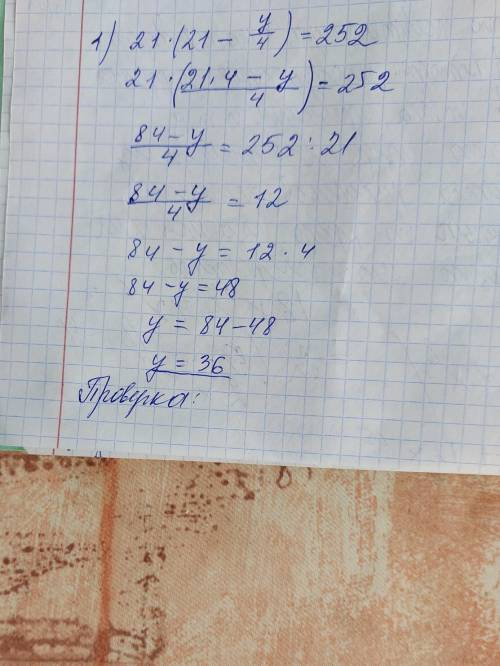 1) 21·(21 - y/4) = 252
21·((21·4 - y)/4) = 252
(84-y)/4 = 252:21
(84-y)/4 = 12
84 - y = 12·4
84 - y = 48
y = 84-48
y = 36
Проверка: